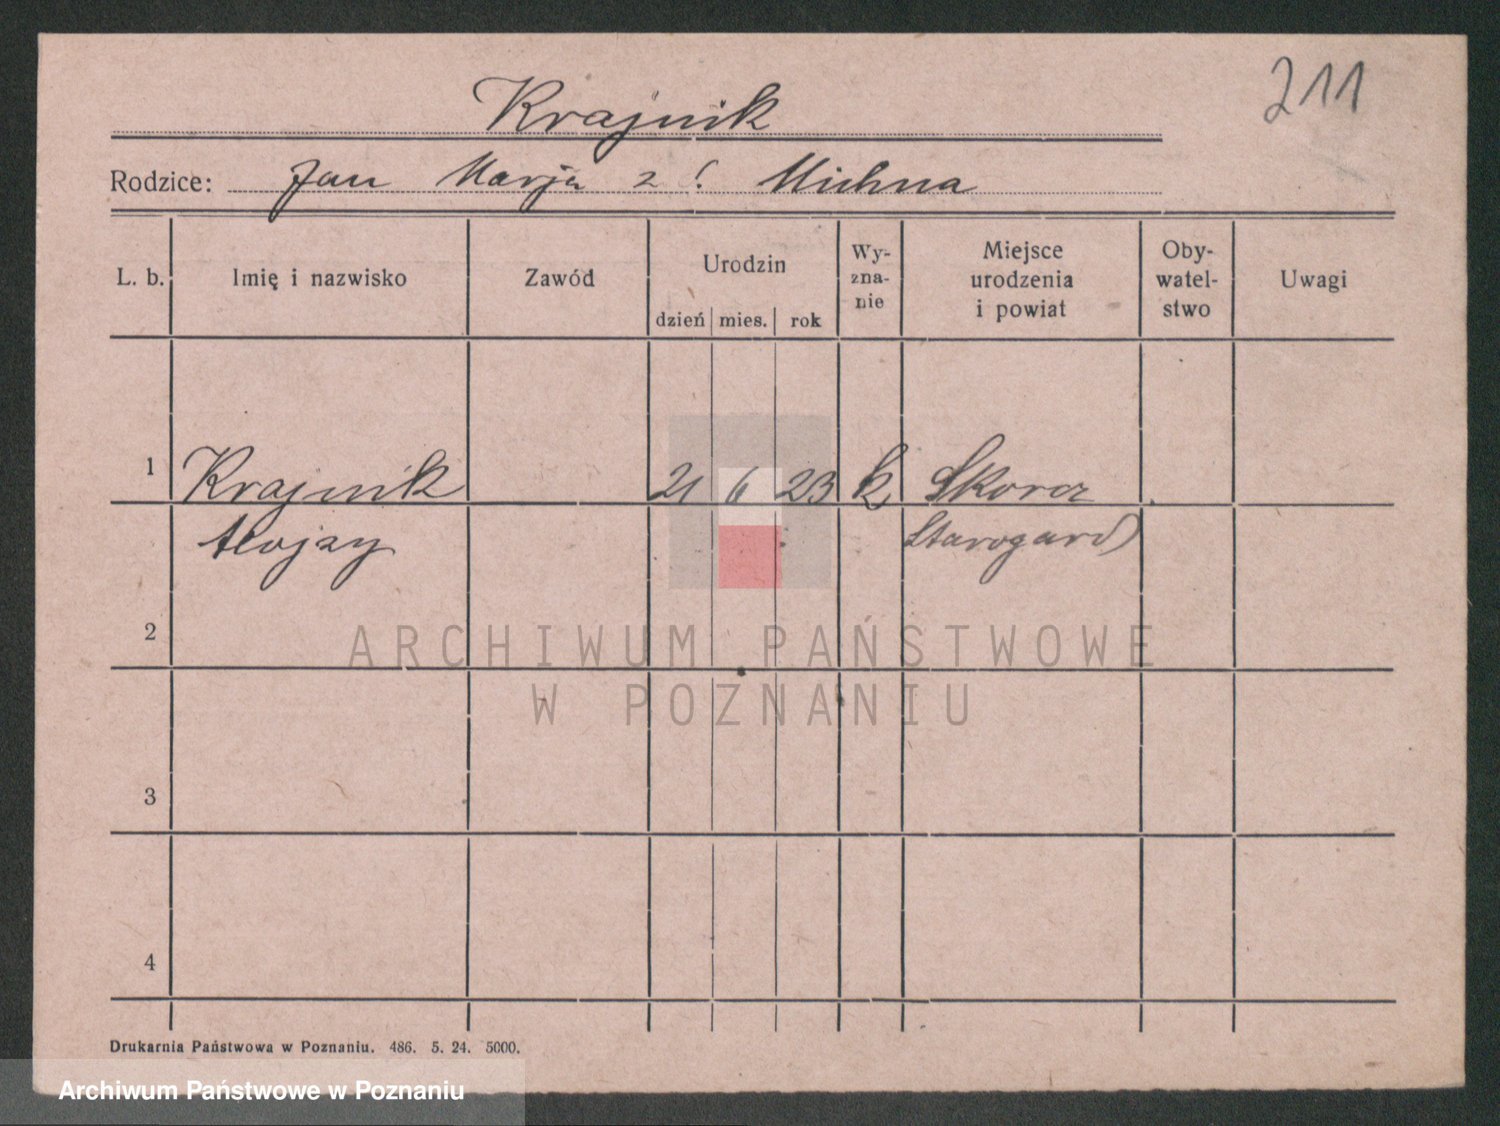 211
Krajnik
Rodzice: Jan Marja z d. Michna
L. b. Imię i nazwisko Zawód Urodzin dzień mies. rok Wy-zna-nie Miejsce urodzenia i powiat Oby-watel-stwo Uwagi
1 Krajnik 21 6 23 k Skorcz
Alojzy Starogard
2
ARCHIWUM PAŃSTWOWE
W POZNANIU
3
4
Drukarnia Państwowa w Poznaniu. 486. 5. 24. 5000.
Archiwum Państwowe w Poznaniu